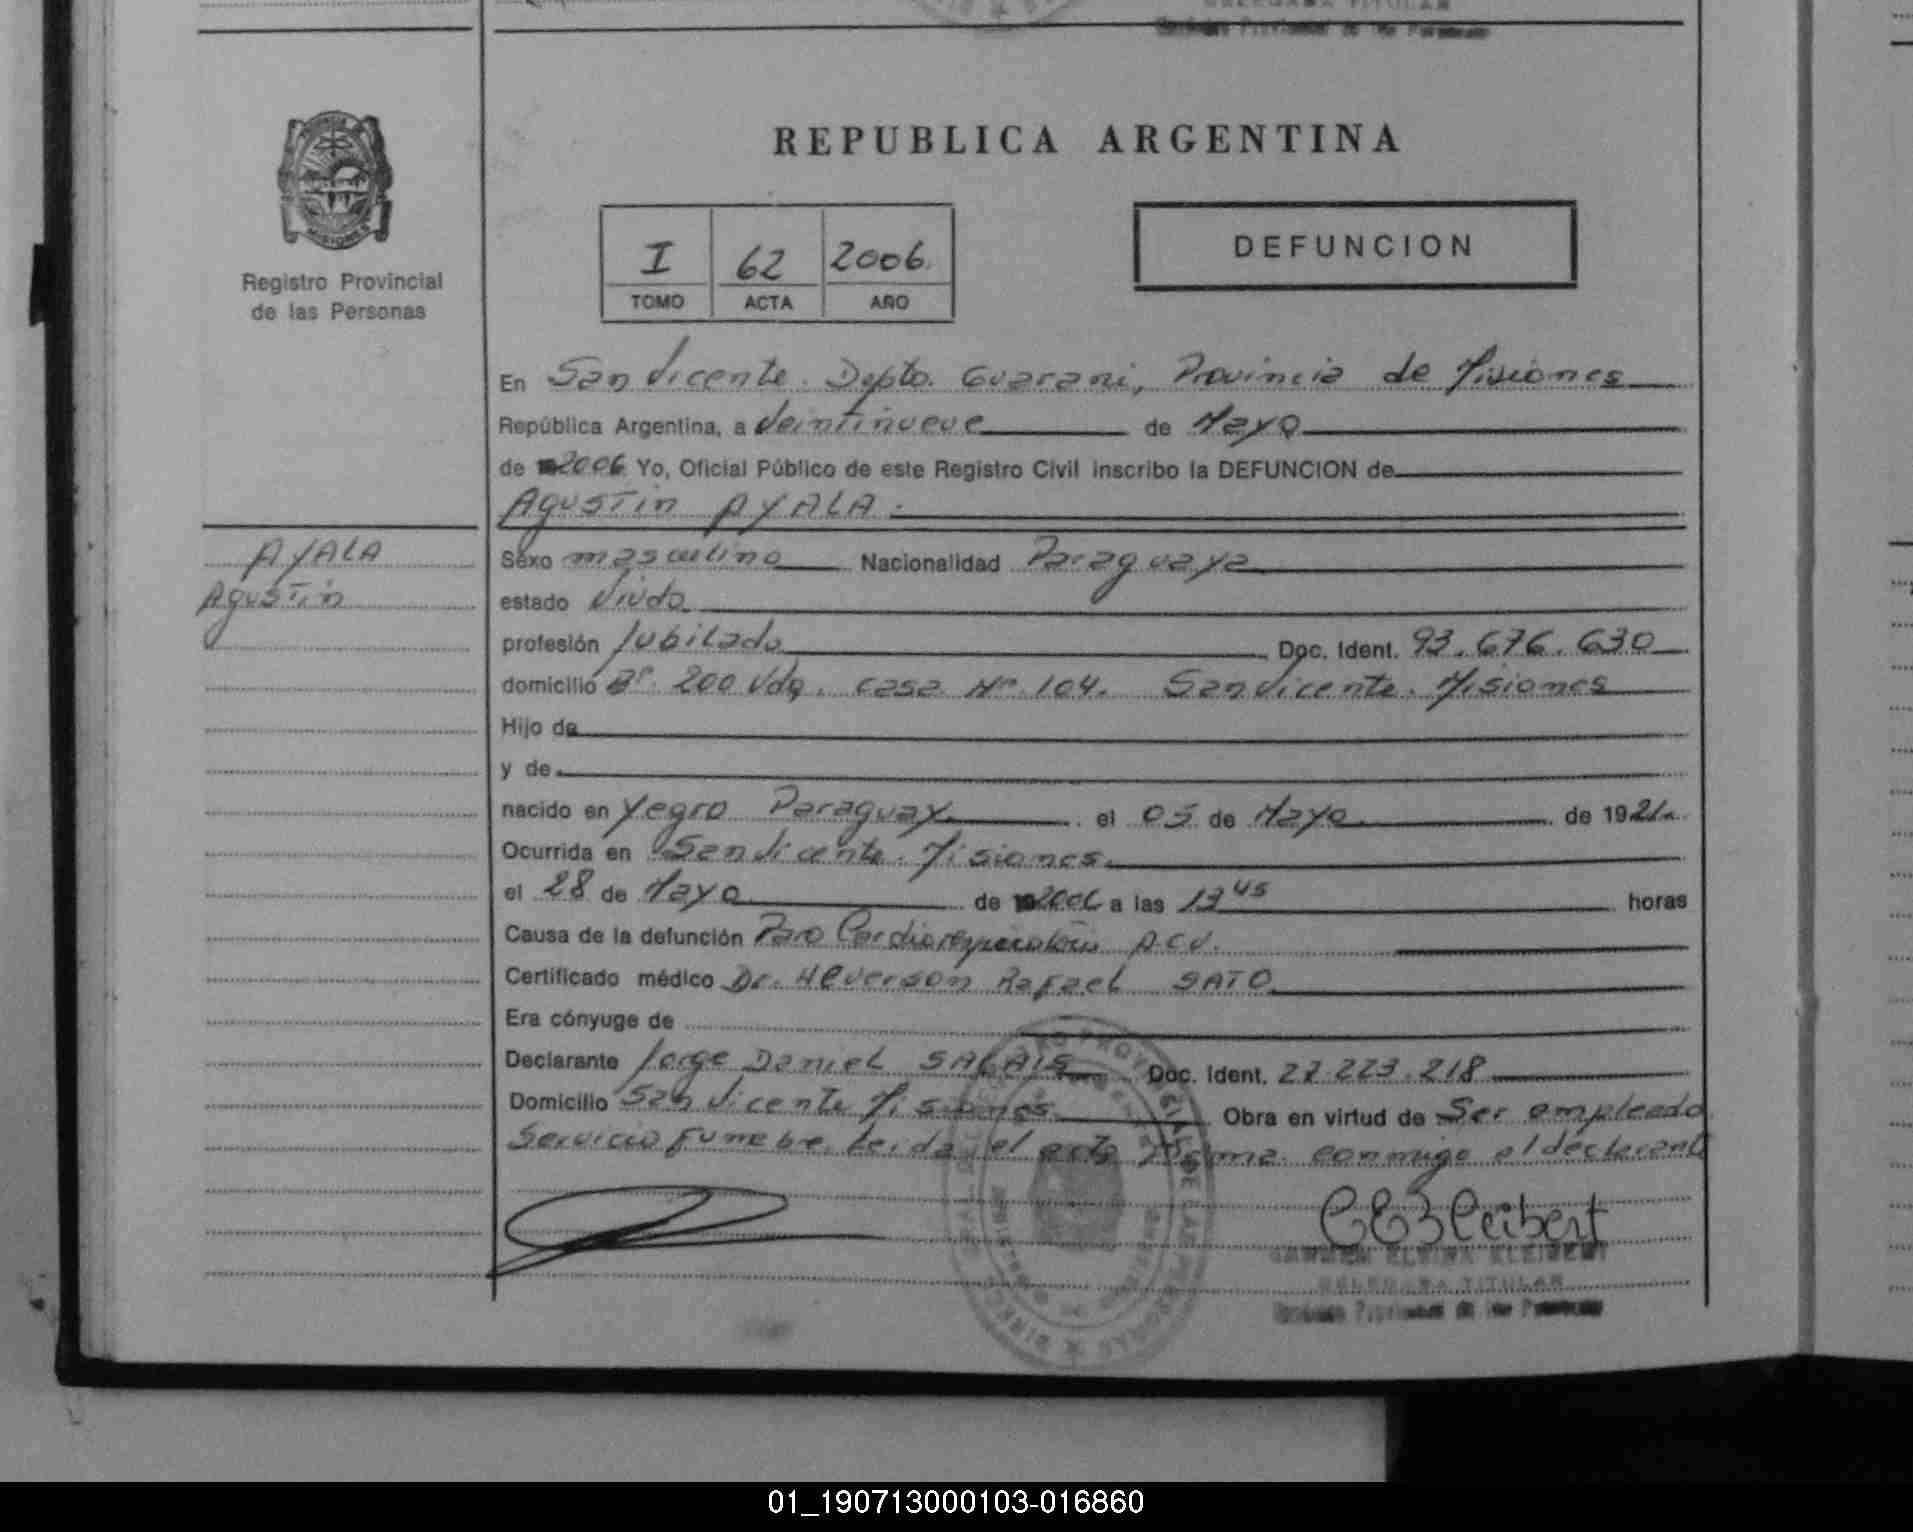 REPUBLICA ARGENTINA
MISIONES
Registro Provincial
de las Personas
I 62 2006
TOMO ACTA AÑO
DEFUNCION
En San Vicente. Depto. Guarani, Provincia de Misiones
República Argentina, a Veintinueve de Mayo
de 2006 Yo, Oficial Público de este Registro Civil inscribo la DEFUNCION de
Agustin AYALA.
AYALA
Agustin
Sexo masculino Nacionalidad Paraguaya
estado Viudo
profesión Jubilado Doc. Ident. 93.676.630
domicilio Bº. 200 Vdas. Casa Nº 104. San Vicente. Misiones
Hijo de
y de
nacido en Yegro Paraguay. el 05 de Mayo de 1921.
Ocurrida en San Vicente. Misiones.
el 28 de Mayo de 2006 a las 13 45 horas
Causa de la defunción Paro Cardiorespiratorio A.C.V.
Certificado médico Dr. Rafael SATO
Era cónyuge de
Declarante Jorge Daniel Doc. Ident. 22.223.218
Domicilio San Vicente Misiones Obra en virtud de Ser empleado
Servicio Funebre. Leida el acta Firma conmigo el declarante
DELEGADA TITULAR
Registro Provincial de las Personas
01_190713000103-016860